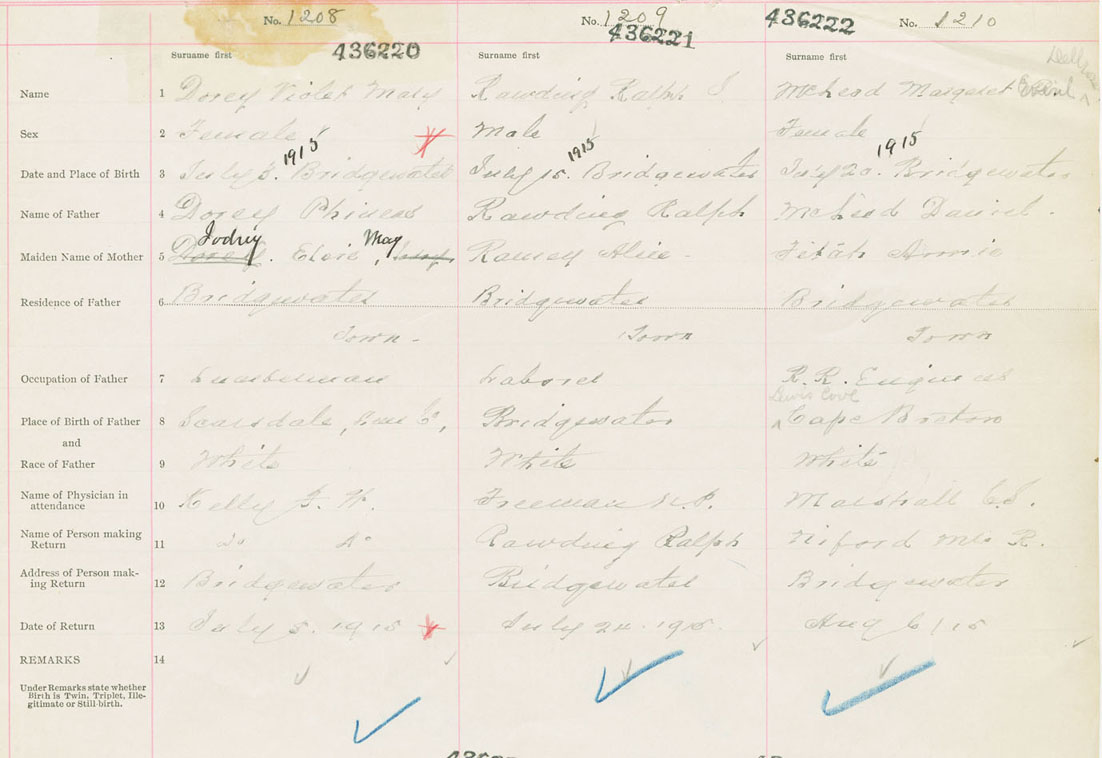 No. 1208
No. 1209
436222 No. 1210
436220
436221
Surname first
Surname first
Surname first
Name 1 Dorey Violet Mary
Rawding Ralph
McLeod Margaret
Sex 2 Female
Male
Female
Date and Place of Birth 3 July 5. 1915 Bridgewater
July 15. 1915 Bridgewater
July 20. 1915 Bridgewater
Name of Father 4 Dorey Phineas
Rawding Ralph
McLeod Daniel.
Maiden Name of Mother 5 Dorey. Jodrey Elsie, May
Ramey Alice.
Annie
Residence of Father 6 Bridgewater
Bridgewater
Bridgewater
Town.
Town
Town
Occupation of Father 7 Lumberman
Laborer
R. R. Engineer
Lewis Cove
Place of Birth of Father 8 Scarsdale, Lun Co,
Bridgewater
^ Cape Breton
and
Race of Father 9 White
White
White
Name of Physician in
attendance 10 Kelly J. W.
Freeman N.P.
Marshall C.S.
Name of Person making
Return 11 Do Do
Rawding Ralph
Mrs R.
Address of Person mak-
ing Return 12 Bridgewater
Bridgewater
Bridgewater
Date of Return 13 July 5. 1915
July 24. 1915.
Aug 6/15
REMARKS 14
Under Remarks state whether
Birth is Twin, Triplet, Ille-
gitimate or Still-birth.